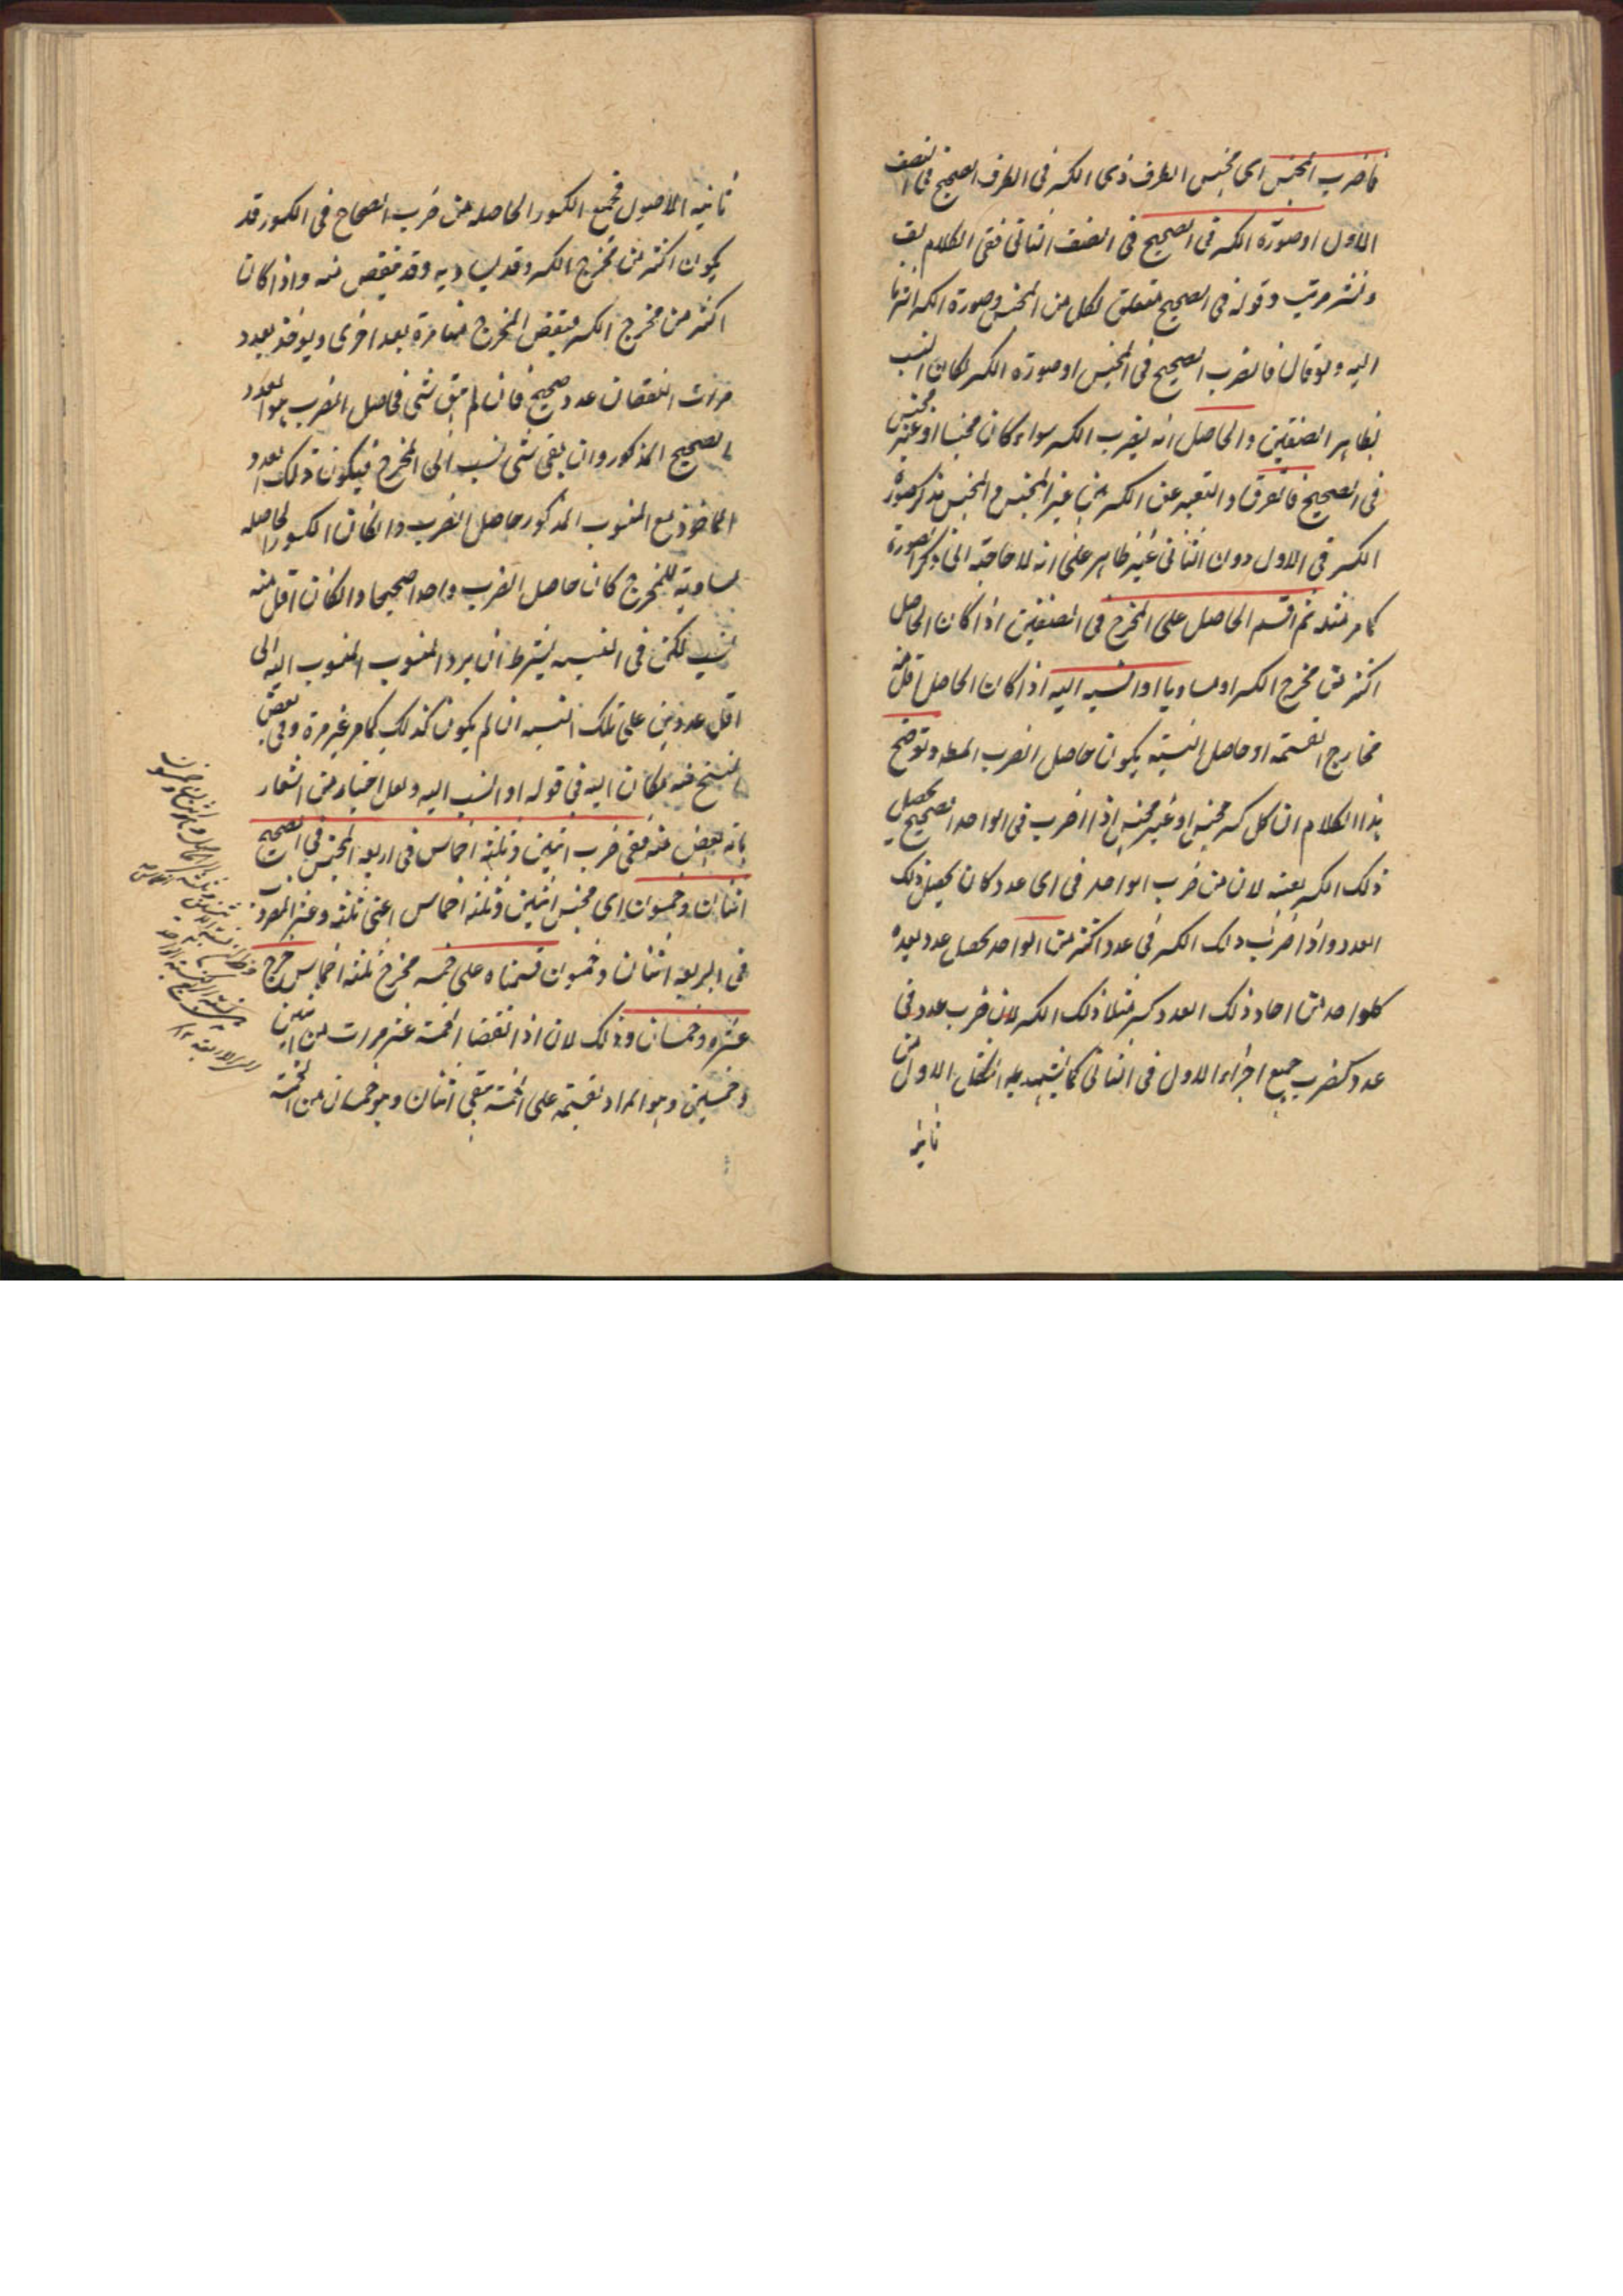 فاضرب المجنس اى مجنس الطرف ذى الكسر فى الطرف الصحيح فى الصنف
الاول او صورة الكسر فى الصحيح فى الصنف الثانى ففى الكلام لف
و نشر مرتب و قوله فى الصحيح متعلق لكل من المجنس و صورة الكسر اشرنا
اليه و لو قال فاضرب الصحيح فى المجنس او صورة الكسر لكان انسب
بظاهر الصنفين و الحاصل انه يضرب الكسر سواء كان مجنسا او غير مجنس
فى الصحيح فالفرق و التعبير عن الكسر غير المجنس و المجنس بذكر صورة
الكسر فى الاول دون الثانى غير ظاهر على انه لا حاجة الى ذكر الصورة
كما مر مثله ثم اقسم الحاصل على المخرج فى الصنفين اذا كان الحاصل
اكثر من مخرج الكسر او مساويا او انسبه اليه اذا كان الحاصل اقل منه
فخارج القسمة او حاصل النسبة يكون حاصل الضرب المط و توضيح
هذا الكلام ان كل كسر مجنس او غير مجنس اذا ضرب فى الواحد الصحيح يحصل
ذلك الكسر بعينه لان من ضرب الواحد فى اى عدد كان يحصل ذلك
العدد و اذا ضرب ذلك الكسر فى عدد اكثر من الواحد يحصل عدد بعده
كل واحد من احاد ذلك العدد كسر مثلا ذلك الكسر لان ضرب عدد فى
عدد كضرب جميع اجزاء الاول فى الثانى كما يشهد به الشكل الاول من
ثانية
ثانية الاصول فجمع الكسور الحاصلة من ضرب الصحاح فى الكسور قد
يكون اكثر من مخرج الكسر و قد يساويه و قد ينقص منه و اذا كان
اكثر من مخرج الكسر ينقص المخرج منها مرة بعد اخرى و يؤخذ بعدد
مرات النقصان عدد صحيح فان لم يبق شئ فحاصل الضرب هو العدد
الصحيح المذكور و ان بقى شئ نسب الى المخرج فيكون ذلك العدد
الماخوذ مع المنسوب المذكور حاصل الضرب و ان كان الكسور الحاصلة
مساوية للمخرج كان حاصل الضرب واحدا صحيحا و ان كان اقل منه
نسب لكن فى النسبة يشترط ان يرد المنسوب و المنسوب اليه الى
اقل عددين على تلك النسبة ان لم يكون كذلك كما مر غير مرة و فى بعض
النسخ منه مكان اليه فى قوله او انسب اليه و لعل اختيار من اشعار
بانه بعض منه ففى ضرب اثنين و ثلثة اخماس فى اربعة المجنس فى الصحيح
اثنان و خمسون اى مجنس اثنين و ثلثة اخماس اعنى ثلثة و عشر المضروب
فى اربعة اثنان و خمسون قسمناه على خمسة مخرج ثلثة اخماس خرج
عشرة و خمسان و ذلك لان اذا نقصنا الخمسة عشر مرات من اثنين
و خمسين و هو المراد بقسمته على الخمسة بقى اثنان و هو خمسان من الخمسة